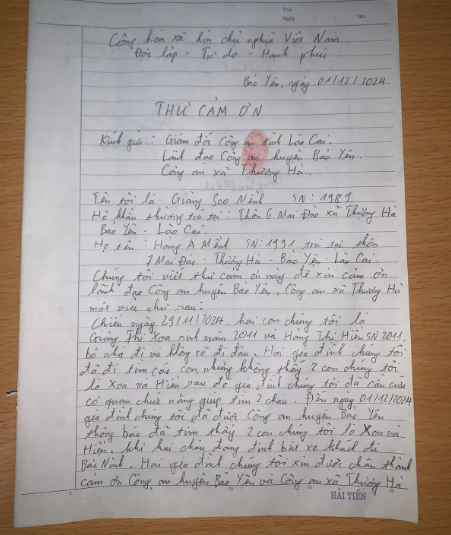 Thứ
Ngày No.
Cộng hòa xã hội chủ nghĩa Việt Nam
Độc lập - Tự do - Hạnh phúc
Bảo Yên, ngày 01/12/2024
THƯ CẢM ƠN
Kính gửi: Giám đốc Công an tỉnh Lào Cai.
Lãnh đạo Công an huyện Bảo Yên.
Công an xã Thượng Hà.
Tên tôi là: Giàng Seo Mềnh SN: 1989
Hộ khẩu thường trú tại: Thôn 6 Mai Đào xã Thượng Hà
Bảo Yên - Lào Cai.
Họ tên: Hoàng A Mềnh SN: 1991 trú tại thôn
7 Mai Đào - Thượng Hà - Bảo Yên - Lào Cai.
Chúng tôi viết thư cảm ơn này để xin cảm ơn
lãnh đạo Công an huyện Bảo Yên, Công an xã Thượng Hà
một việc như sau:
Chiều ngày 29/11/2024 hai con chúng tôi là
Giàng Thị Xoa sinh năm 2011 và Hoàng Thị Hiền SN 2011
bỏ nhà đi và không rõ đi đâu. Hai gia đình chúng tôi
đã đi tìm các con nhưng không thấy 2 con chúng tôi
là Xoa và Hiền sau đó gia đình chúng tôi đã cầu cứu
cơ quan chức năng giúp tìm 2 cháu. Đến ngày 01/12/2024
gia đình chúng tôi đã được Công an huyện Bảo Yên
thông báo đã tìm thấy 2 con chúng tôi là Xoa và
Hiền. khi hai cháu đang định bắt xe khách đi
Bắc Ninh. Hai gia đình chúng tôi xin được chân thành
cảm ơn Công an huyện Bảo Yên và Công an xã Thượng Hà
HẢI TIẾN